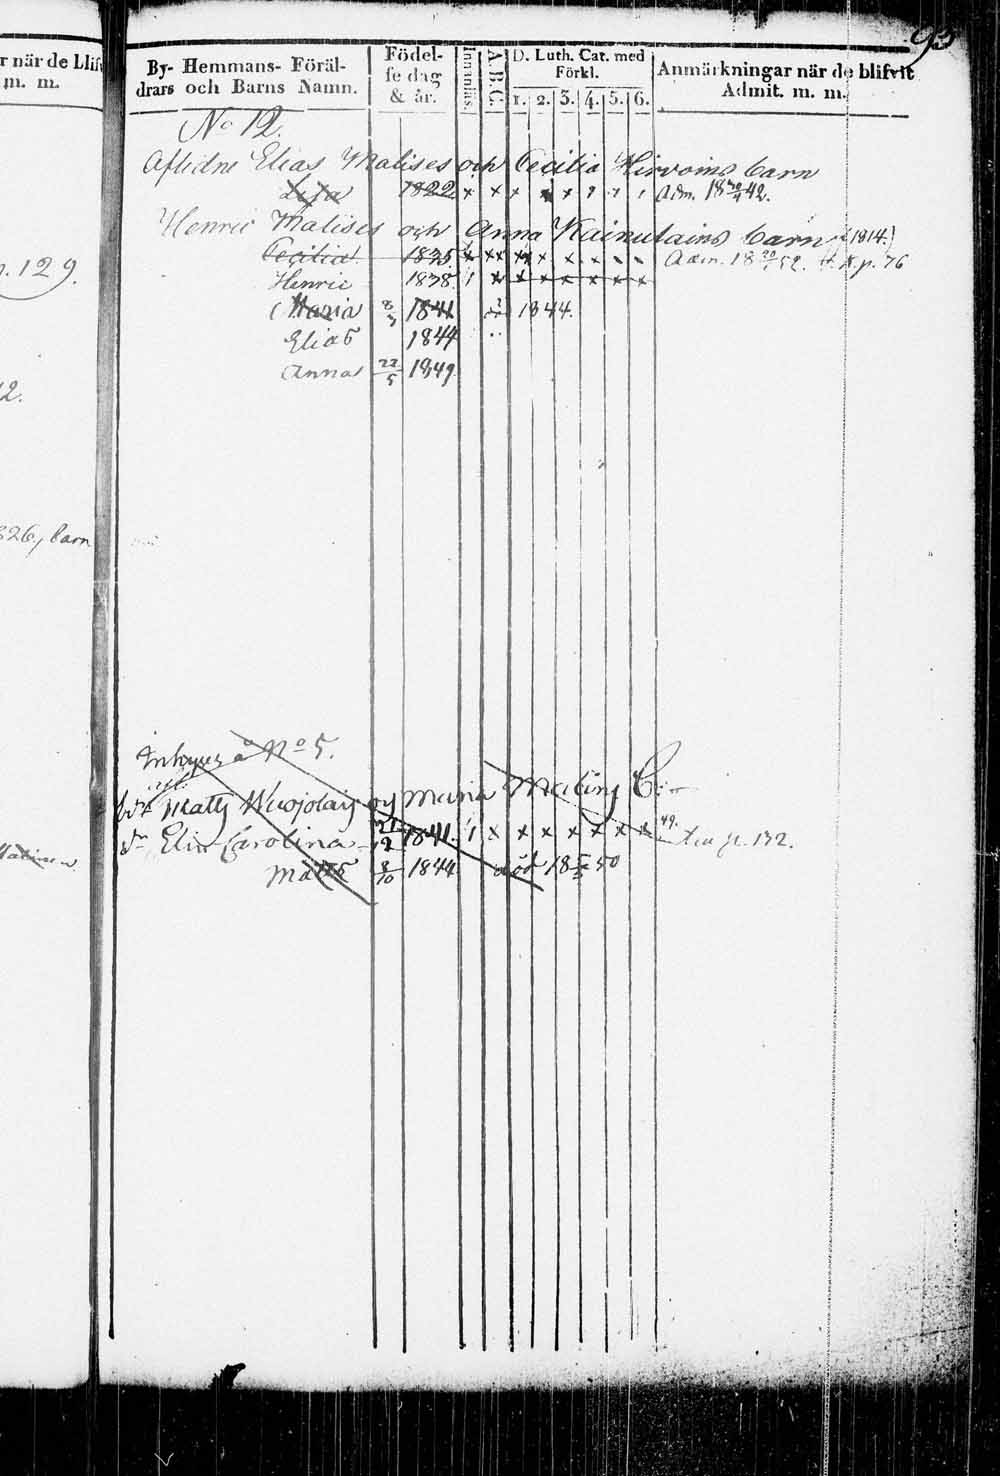 93
r när de blif
m. m.
By- Hemmans- Föräl-
drars och Barns Namn.
Födel-
se dag
& år.
Innanläs.
A.B.C.
D. Luth. Cat. med
Förkl.
1. 2. 3. 4. 5. 6.
Anmärkningar när de blifvit
Admit. m. m.
No 12.
Aflidne Elias Malises och Cecilia Hirvoins barn
Lisa 1822 x x x x x Adm. 18 30/4 42.
Henric Malises och Anna Kainulains barn (1814.)
Cecilia 1835 x xx x x x x x Adm. 18 52. p. 76
Henric 1838 1 x x x x x x x
Maria 8/3 1841 1844.
Elias 1844
Anna 22/5 1849
129.
12.
826, barn
Inhyses å No 5.
Matts Maria
Elin Carolina 21/12 1841. 1 x x x x x x x 49. p. 132.
Matts 8/10 1844 död 18 50